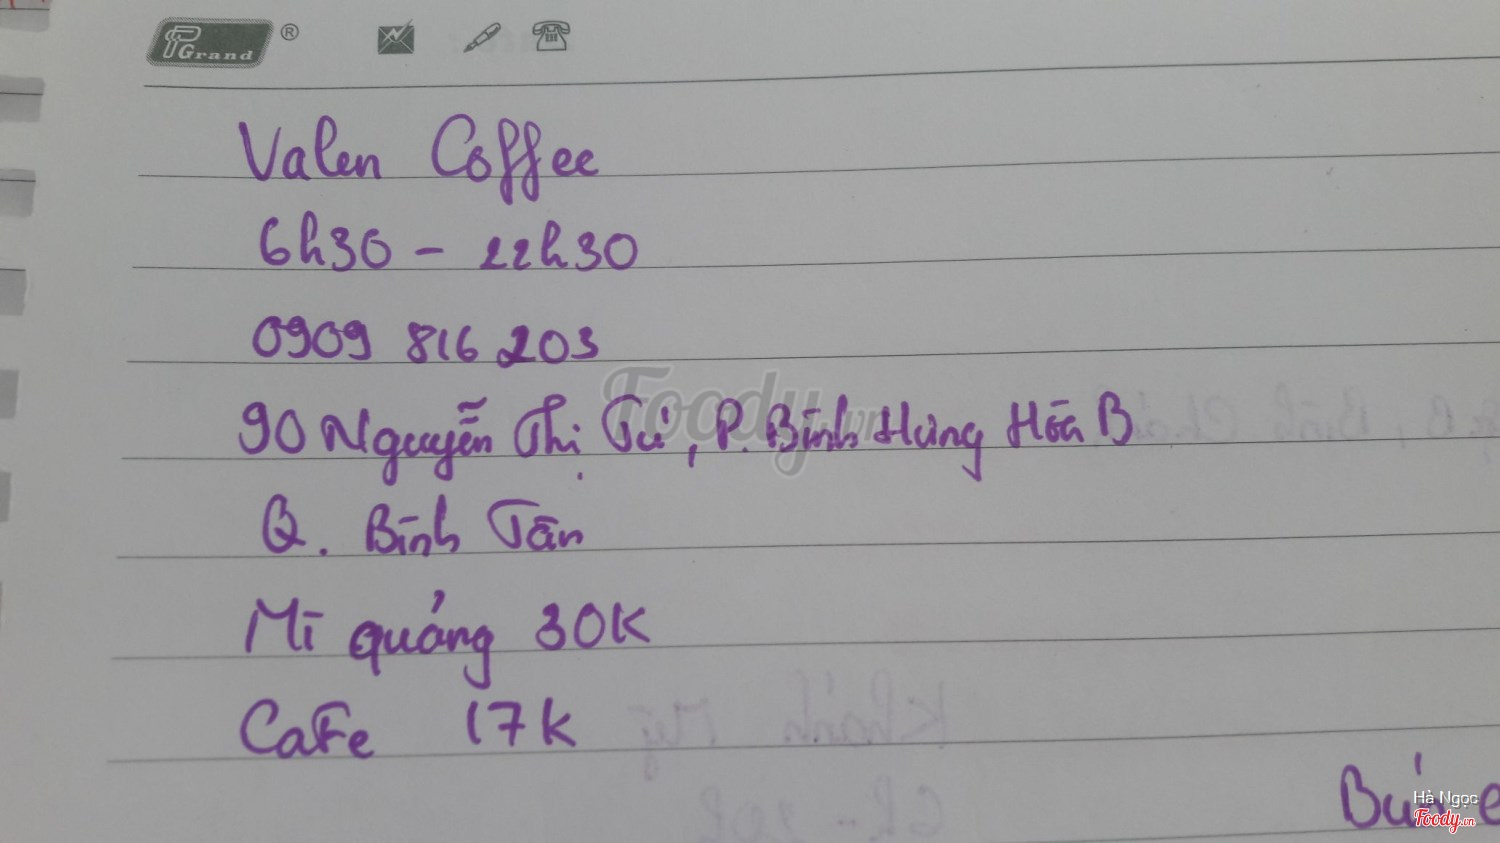 PGrand ®
Valen Coffee
6h30 - 22h30
0909 816 203
90 Nguyễn Thị Tú, P. Bình Hưng Hòa B
Q. Bình Tân
Mì quảng 30K
CaFe 17K
Bún
Foody.vn
Hà Ngọc
Foody.vn